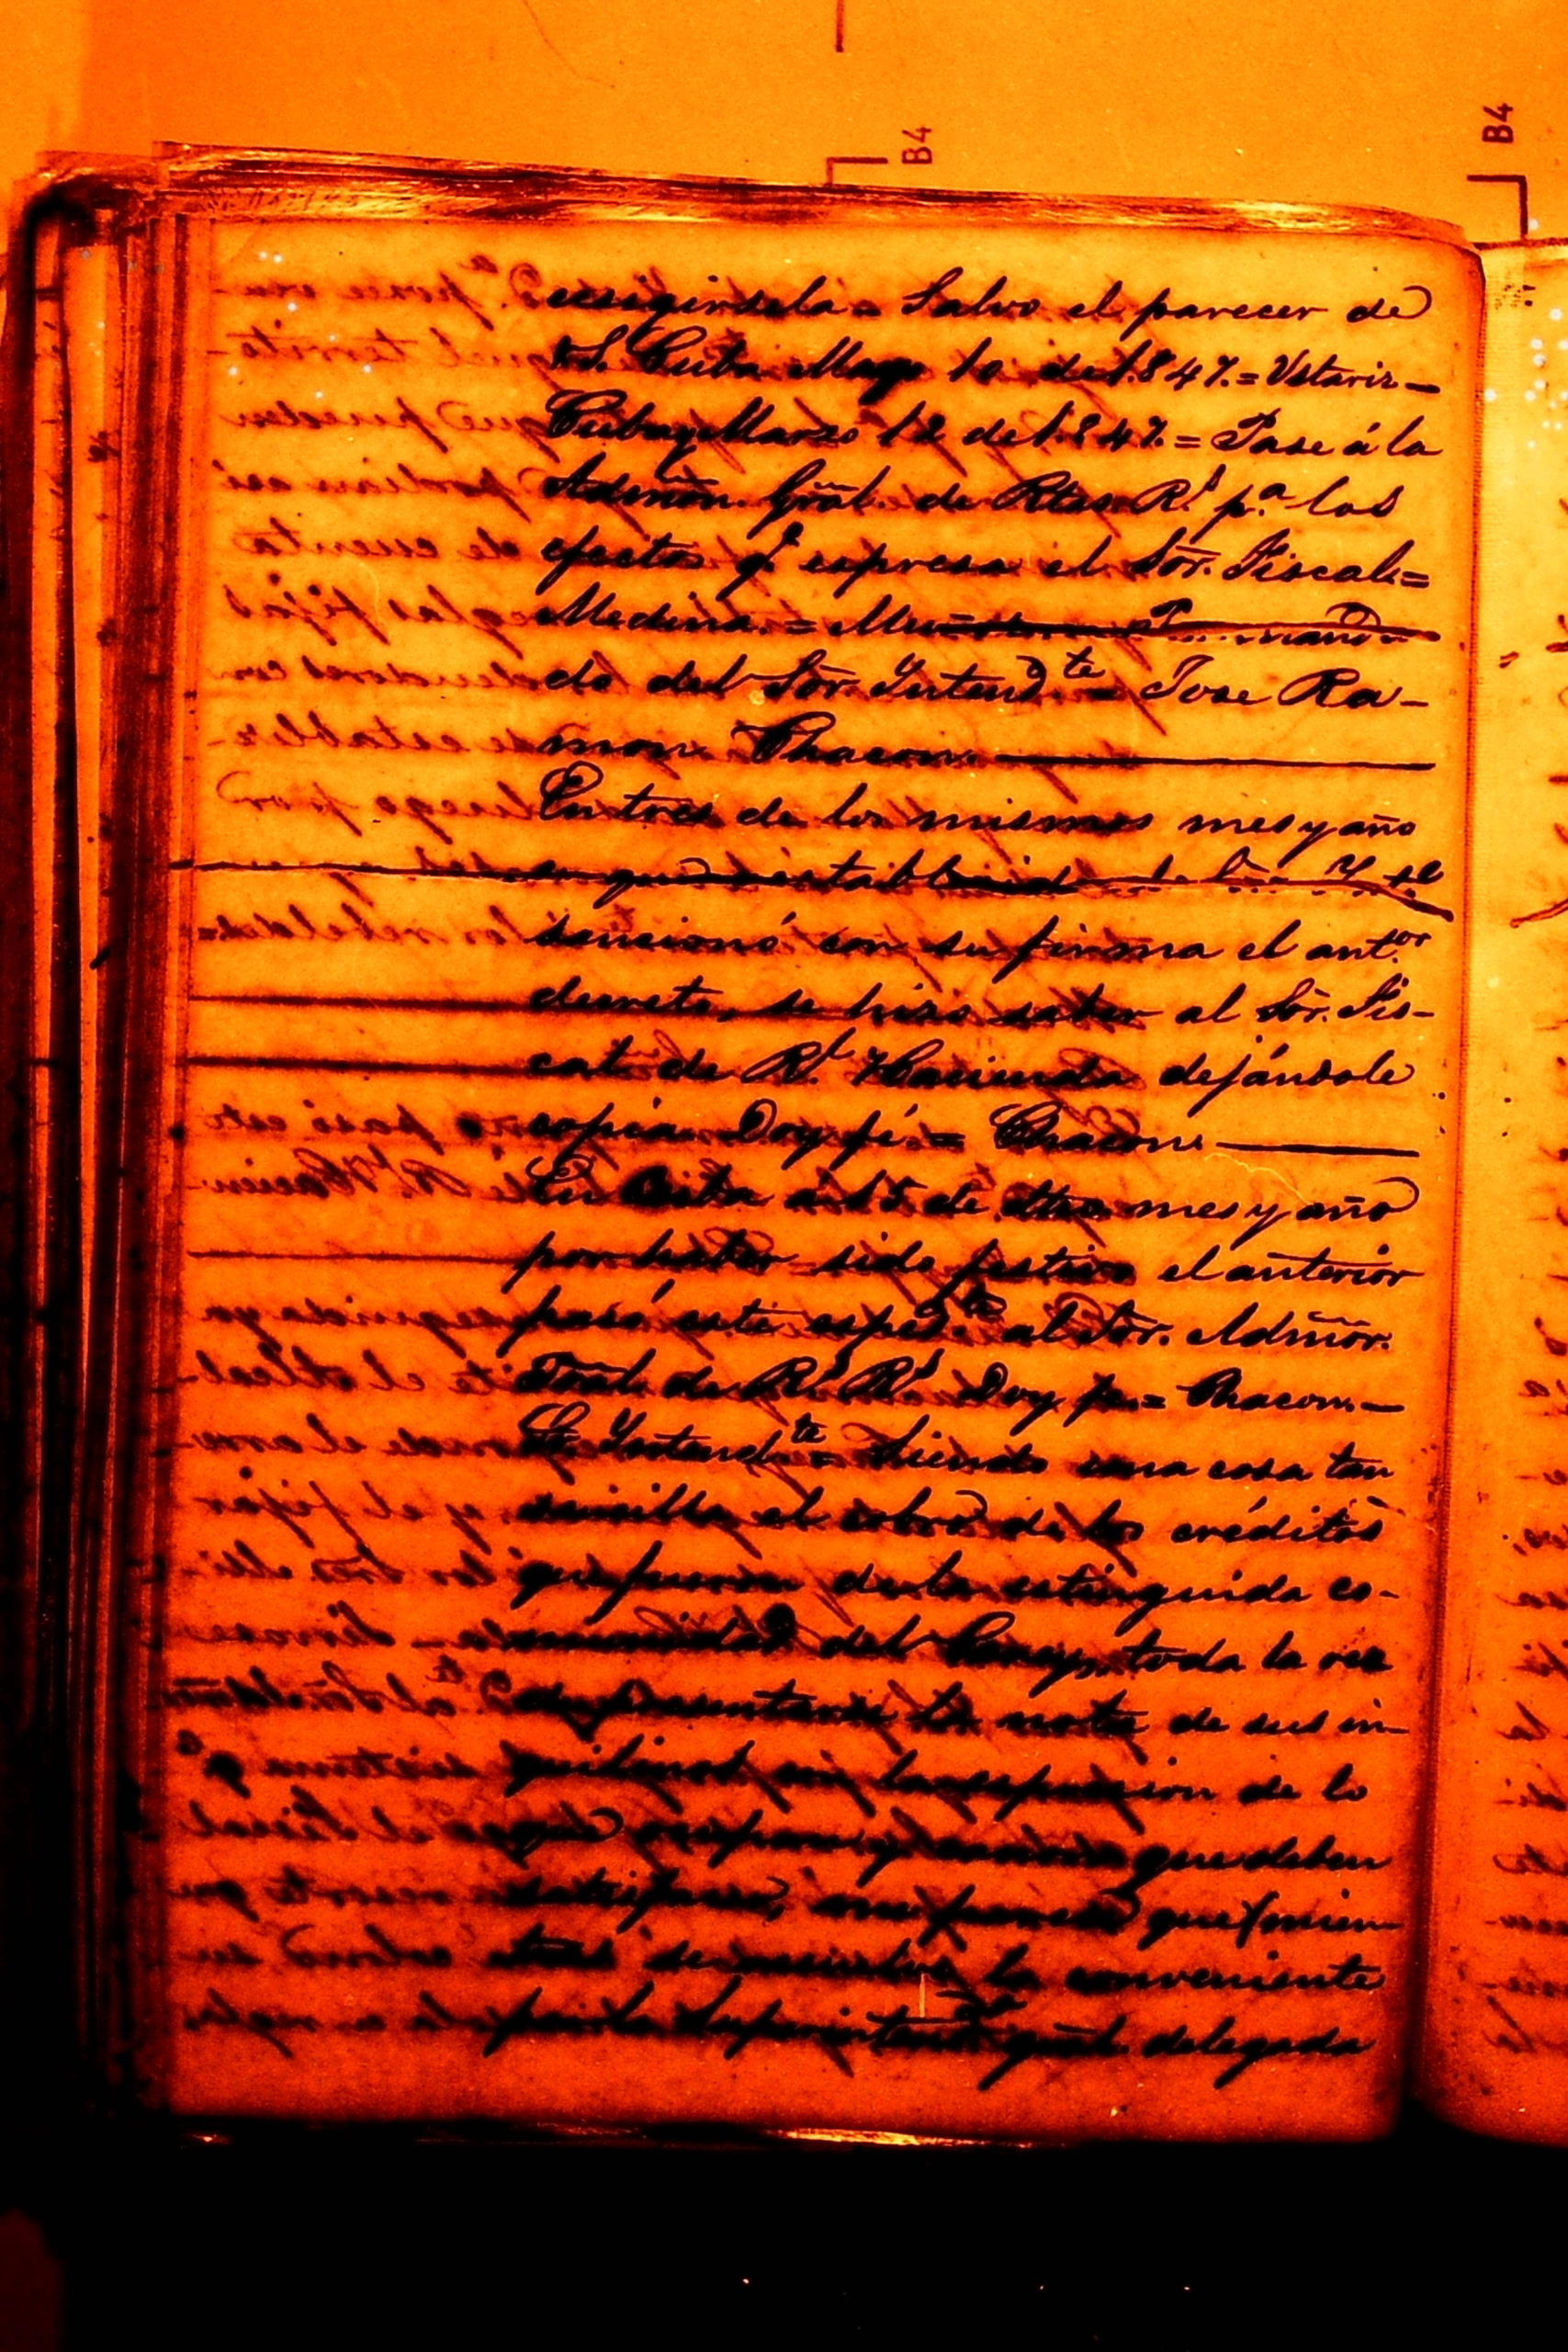 B4
B4
ecsigirsela = Salvo el parecer de
V.S. Cuba Mayo 10 de 1.847. = Ustariz -
Cuba y Marzo 12 de 1.847. = Pase á la
Admõn Gral. de Rtas. Rs. pa. los
efectos qe. espresa el Sõr. Fiscal =
Medina = Por mand-
do del Sõr. Intendte = Jose Ra-
mon Chacon
En tres de los mismos mes y año
sancionó con su firma el antor.
decreto, se hizo saber al Sõr. Fis-
cal de Rl. Hacienda dejándole
copia Doy fé = Chacon
En Cuba á 15 de dho. mes y año
por haber sido festivo el anterior
pasó este espedte. al Sõr. Admõr.
Gral. de Rs. Rs. Doy fe = Chacon -
Sr. Intendte = Siendo una cosa tan
sencilla el cobro de los créditos
que fueron de la estinguida co-
munidad del Caney, toda la vez
presentaria la nota de sus in-
quilinos, con la espresion de lo
que ocupan y que deben
satisfacer, me parece que mien-
tras se resuelve lo conveniente
por la Superintenda. gral. delegada